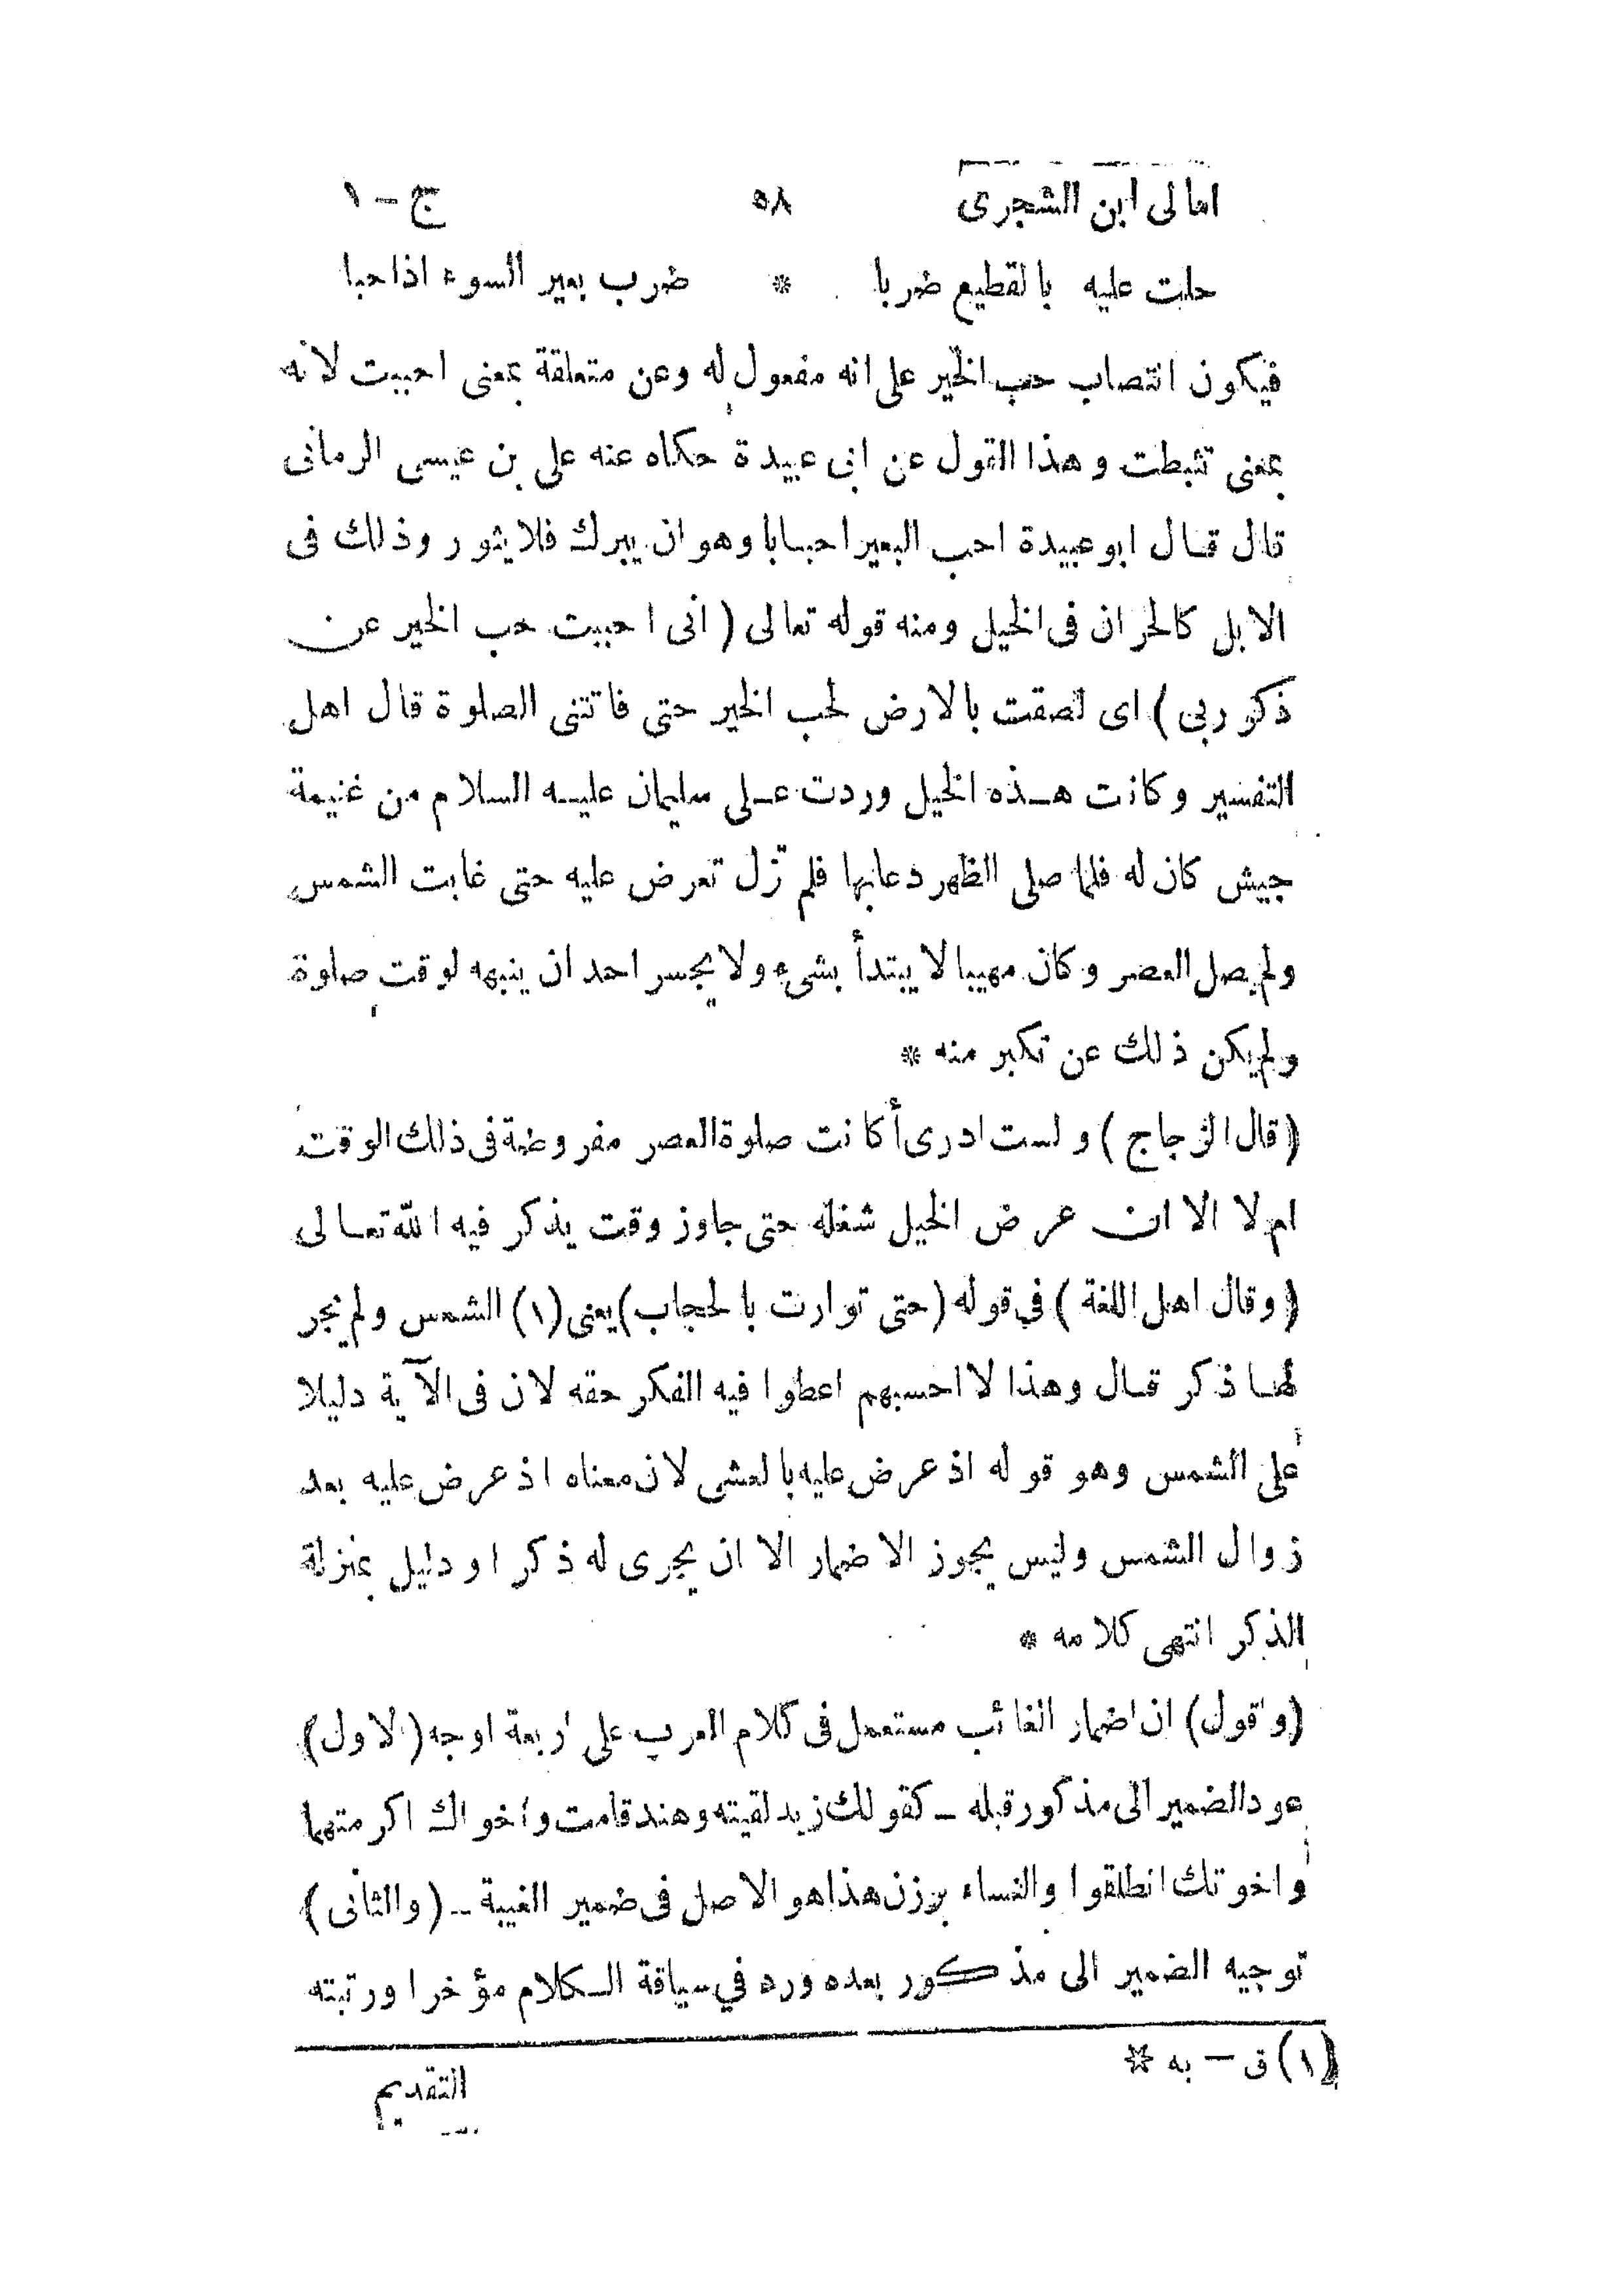 امالى ابن الشجرى ٥٨ ج – ١
حلت عليه بالقطيع ضربا * ضرب بعير السوء اذاحبا
فيكون انتصاب حب الخير على انه مفعول له وعن متعلقة بمعنى احببت لانه
بمعنى تثبطت وهذا القول عن ابى عبيدة حكاه عنه على بن عيسى الرمانى
قال قال ابوعبيدة احب البعير احبابا وهو ان يبرك فلا يثور وذلك فى
الابل كالحران فى الخيل ومنه قوله تعالى ( انى احببت حب الخير عن
ذكر ربى ) اى لصقت بالارض لحب الخير حتى فاتتنى الصلوة قال اهل
التفسير وكانت هذه الخيل وردت على سليمان عليه السلام من غنيمة
جيش كان له فلما صلى الظهر دعابها فلم تزل تعرض عليه حتى غابت الشمس
ولم يصل العصر وكان مهيبا لا يبتدأ بشىء ولا يجسر احد ان ينبهه لوقت صلوة
ولم يكن ذلك عن تكبر منه *
( قال الزجاج ) ولست ادرى أكانت صلوة العصر مفروضة فى ذلك الوقت
ام لا الا ان عرض الخيل شغله حتى جاوز وقت يذكر فيه الله تعالى
( وقال اهل اللغة ) فى قوله ( حتى توارت بالحجاب ) يعنى (١) الشمس ولم يجر
لها ذكر قال وهذا لا احسبهم اعطوا فيه الفكر حقه لان فى الآية دليلا
على الشمس وهو قوله اذ عرض عليه بالعشى لان معناه اذ عرض عليه بعد
زوال الشمس وليس يجوز الاضمار الا ان يجرى له ذكر او دليل بمنزلة
الذكر انتهى كلامه *
( واقول ) ان اضمار الغائب مستعمل فى كلام العرب على اربعة اوجه ( الاول )
عود الضمير الى مذكور قبله – كقولك زيد لقيته وهند قامت واخواك اكرمتهما
واخوتك انطلقوا والنساء برزن هذا هو الاصل فى ضمير الغيبة – ( والثانى )
توجيه الضمير الى مذكور بعده ورد في سياقة الكلام مؤخرا ورتبته
(١) ق – به *
التقديم